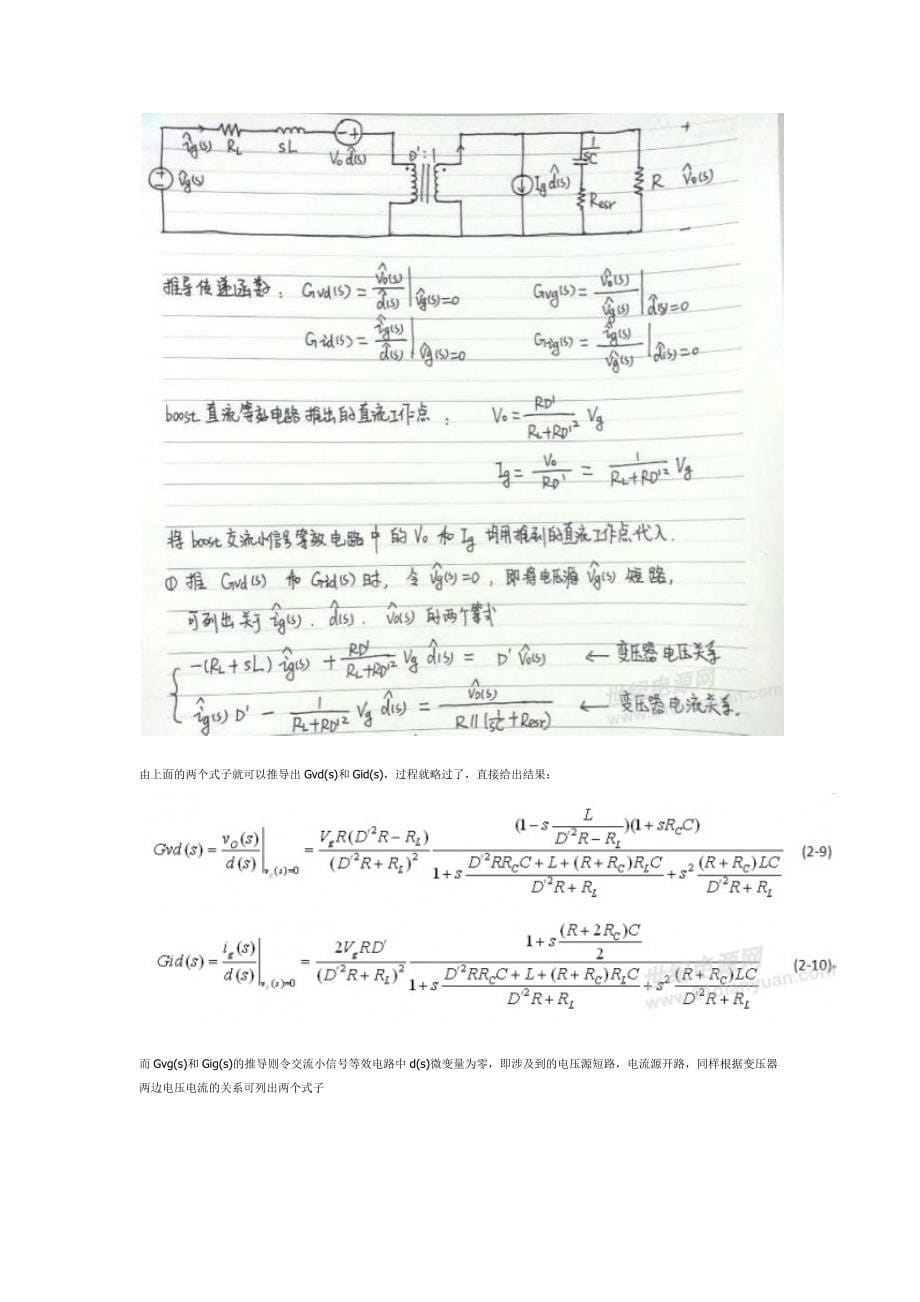 îg(s) RL sL Vo d̂(s) D':1 1/sC +
v̂g(s) Ig d̂(s) Resr R v̂o(s)
−
推导传递函数: Gvd(s) = v̂o(s)/d̂(s) | v̂g(s)=0 Gvg(s) = v̂o(s)/v̂g(s) | d̂(s)=0
Gid(s) = îg(s)/d̂(s) | v̂g(s)=0 Gig(s) = îg(s)/v̂g(s) | d̂(s)=0
boost 直流等效电路推出的直流工作点: Vo = RD'/(RL+RD'²) Vg
Ig = Vo/RD' = 1/(RL+RD'²) Vg
将 boost 交流小信号等效电路中的 Vo 和 Ig 均用推到的直流工作点代入.
① 推 Gvd(s) 和 Gid(s) 时, 令 v̂g(s)=0, 即将电压源 v̂g(s) 短路,
可列出关于 îg(s). d̂(s). v̂o(s) 的两个等式
−(RL+sL) îg(s) + RD'/(RL+RD'²) Vg d̂(s) = D' v̂o(s) ← 变压器电压关系
îg(s) D' − 1/(RL+RD'²) Vg d̂(s) = v̂o(s)/(R||(1/sC+Resr)) ← 变压器电流关系.
世纪电源网
由上面的两个式子就可以推导出 Gvd(s)和 Gid(s)，过程就略过了，直接给出结果：
Gvd(s) = v_O(s)/d(s) |v_g(s)=0 = V_g R(D'²R−R_L)/(D'²R+R_L)² (1−s L/(D'²R−R_L))(1+sR_C C)/(1+s (D'²RR_C C+L+(R+R_C)R_L C)/(D'²R+R_L)+s² (R+R_C)LC/(D'²R+R_L)) (2-9)
Gid(s) = i_g(s)/d(s) |v_g(s)=0 = 2V_g RD'/(D'²R+R_L)² (1+s (R+2R_C)C/2)/(1+s (D'²RR_C C+L+(R+R_C)R_L C)/(D'²R+R_L)+s² (R+R_C)LC/(D'²R+R_L)) (2-10)
世纪电源网
而 Gvg(s)和 Gig(s)的推导则令交流小信号等效电路中 d(s)微变量为零，即涉及到的电压源短路，电流源开路，同样根据变压器
两边电压电流的关系可列出两个式子